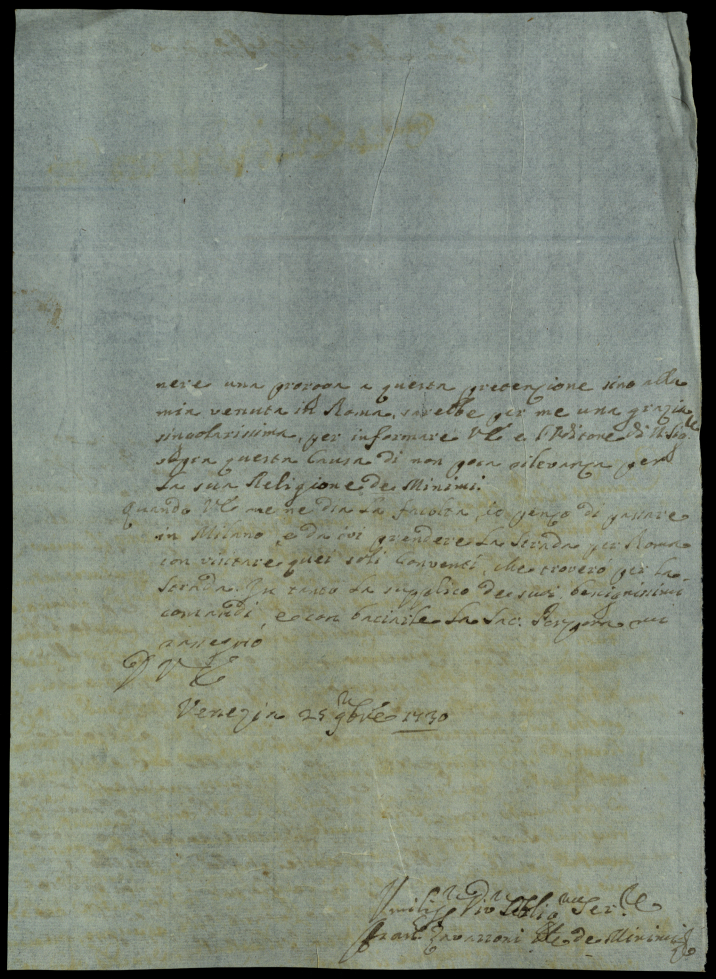 nere una proroga a questa pretenzione sino alla
mia venuta in Roma, sarebbe per me una grazia
singolarissima, per informare VE e l'Uditore di
sopra questa Causa di non poca rilevanza per
la sua Religione de Minimi.
Quando VE me ne dia la facoltà, io penso di passare
in Milano, e da ivi prendere la strada per Roma
con visitare quei soli Conventi, che troverò per la
strada. In tanto la supplico de suoi benignissimi
comandi, e con baciarle la Sac. Porpora mi
rassegno
D V E
Venezia 25 9bre 1730
Umiliss Div Obblig Ser.
Fran Zavarroni Gle de Minimi